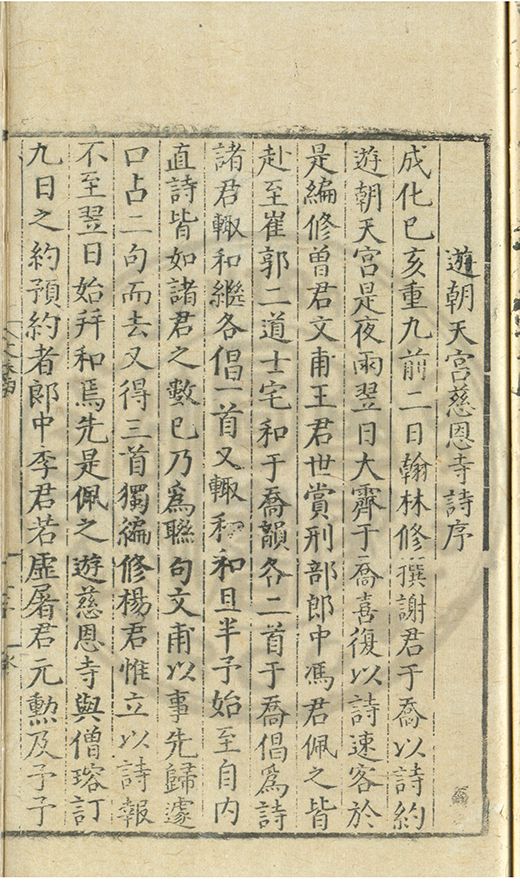 遊朝天宮慈恩寺詩序
成化己亥重九前二日翰林修撰謝君于喬以詩約
遊朝天宮是夜雨翌日大霽于喬喜復以詩速客於
是編修曾君文甫王君世賞刑部郎中馮君佩之皆
赴至崔郭二道士宅和于喬韻各二首于喬倡為詩
諸君輙和繼各倡一首又輙和和且半予始至自内
直詩皆如諸君之數已乃為聯句文甫以事先歸遽
口占二句而去又得三首獨編修楊君惟立以詩報
不至翌日始拜和焉先是佩之遊慈恩寺與僧瑢訂
九日之約預約者郎中李君若虛屠君元勳及予予